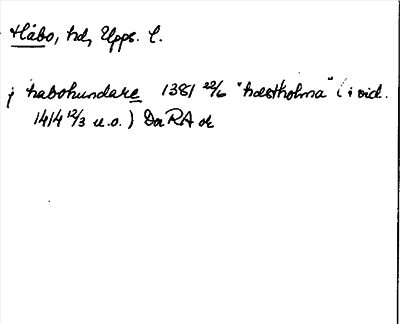 Håbo, hd, Upps. l.
j habohundare 1381 22/6 "hæstholma" (i vid.
1414 12/3 u.o.) Da RA or